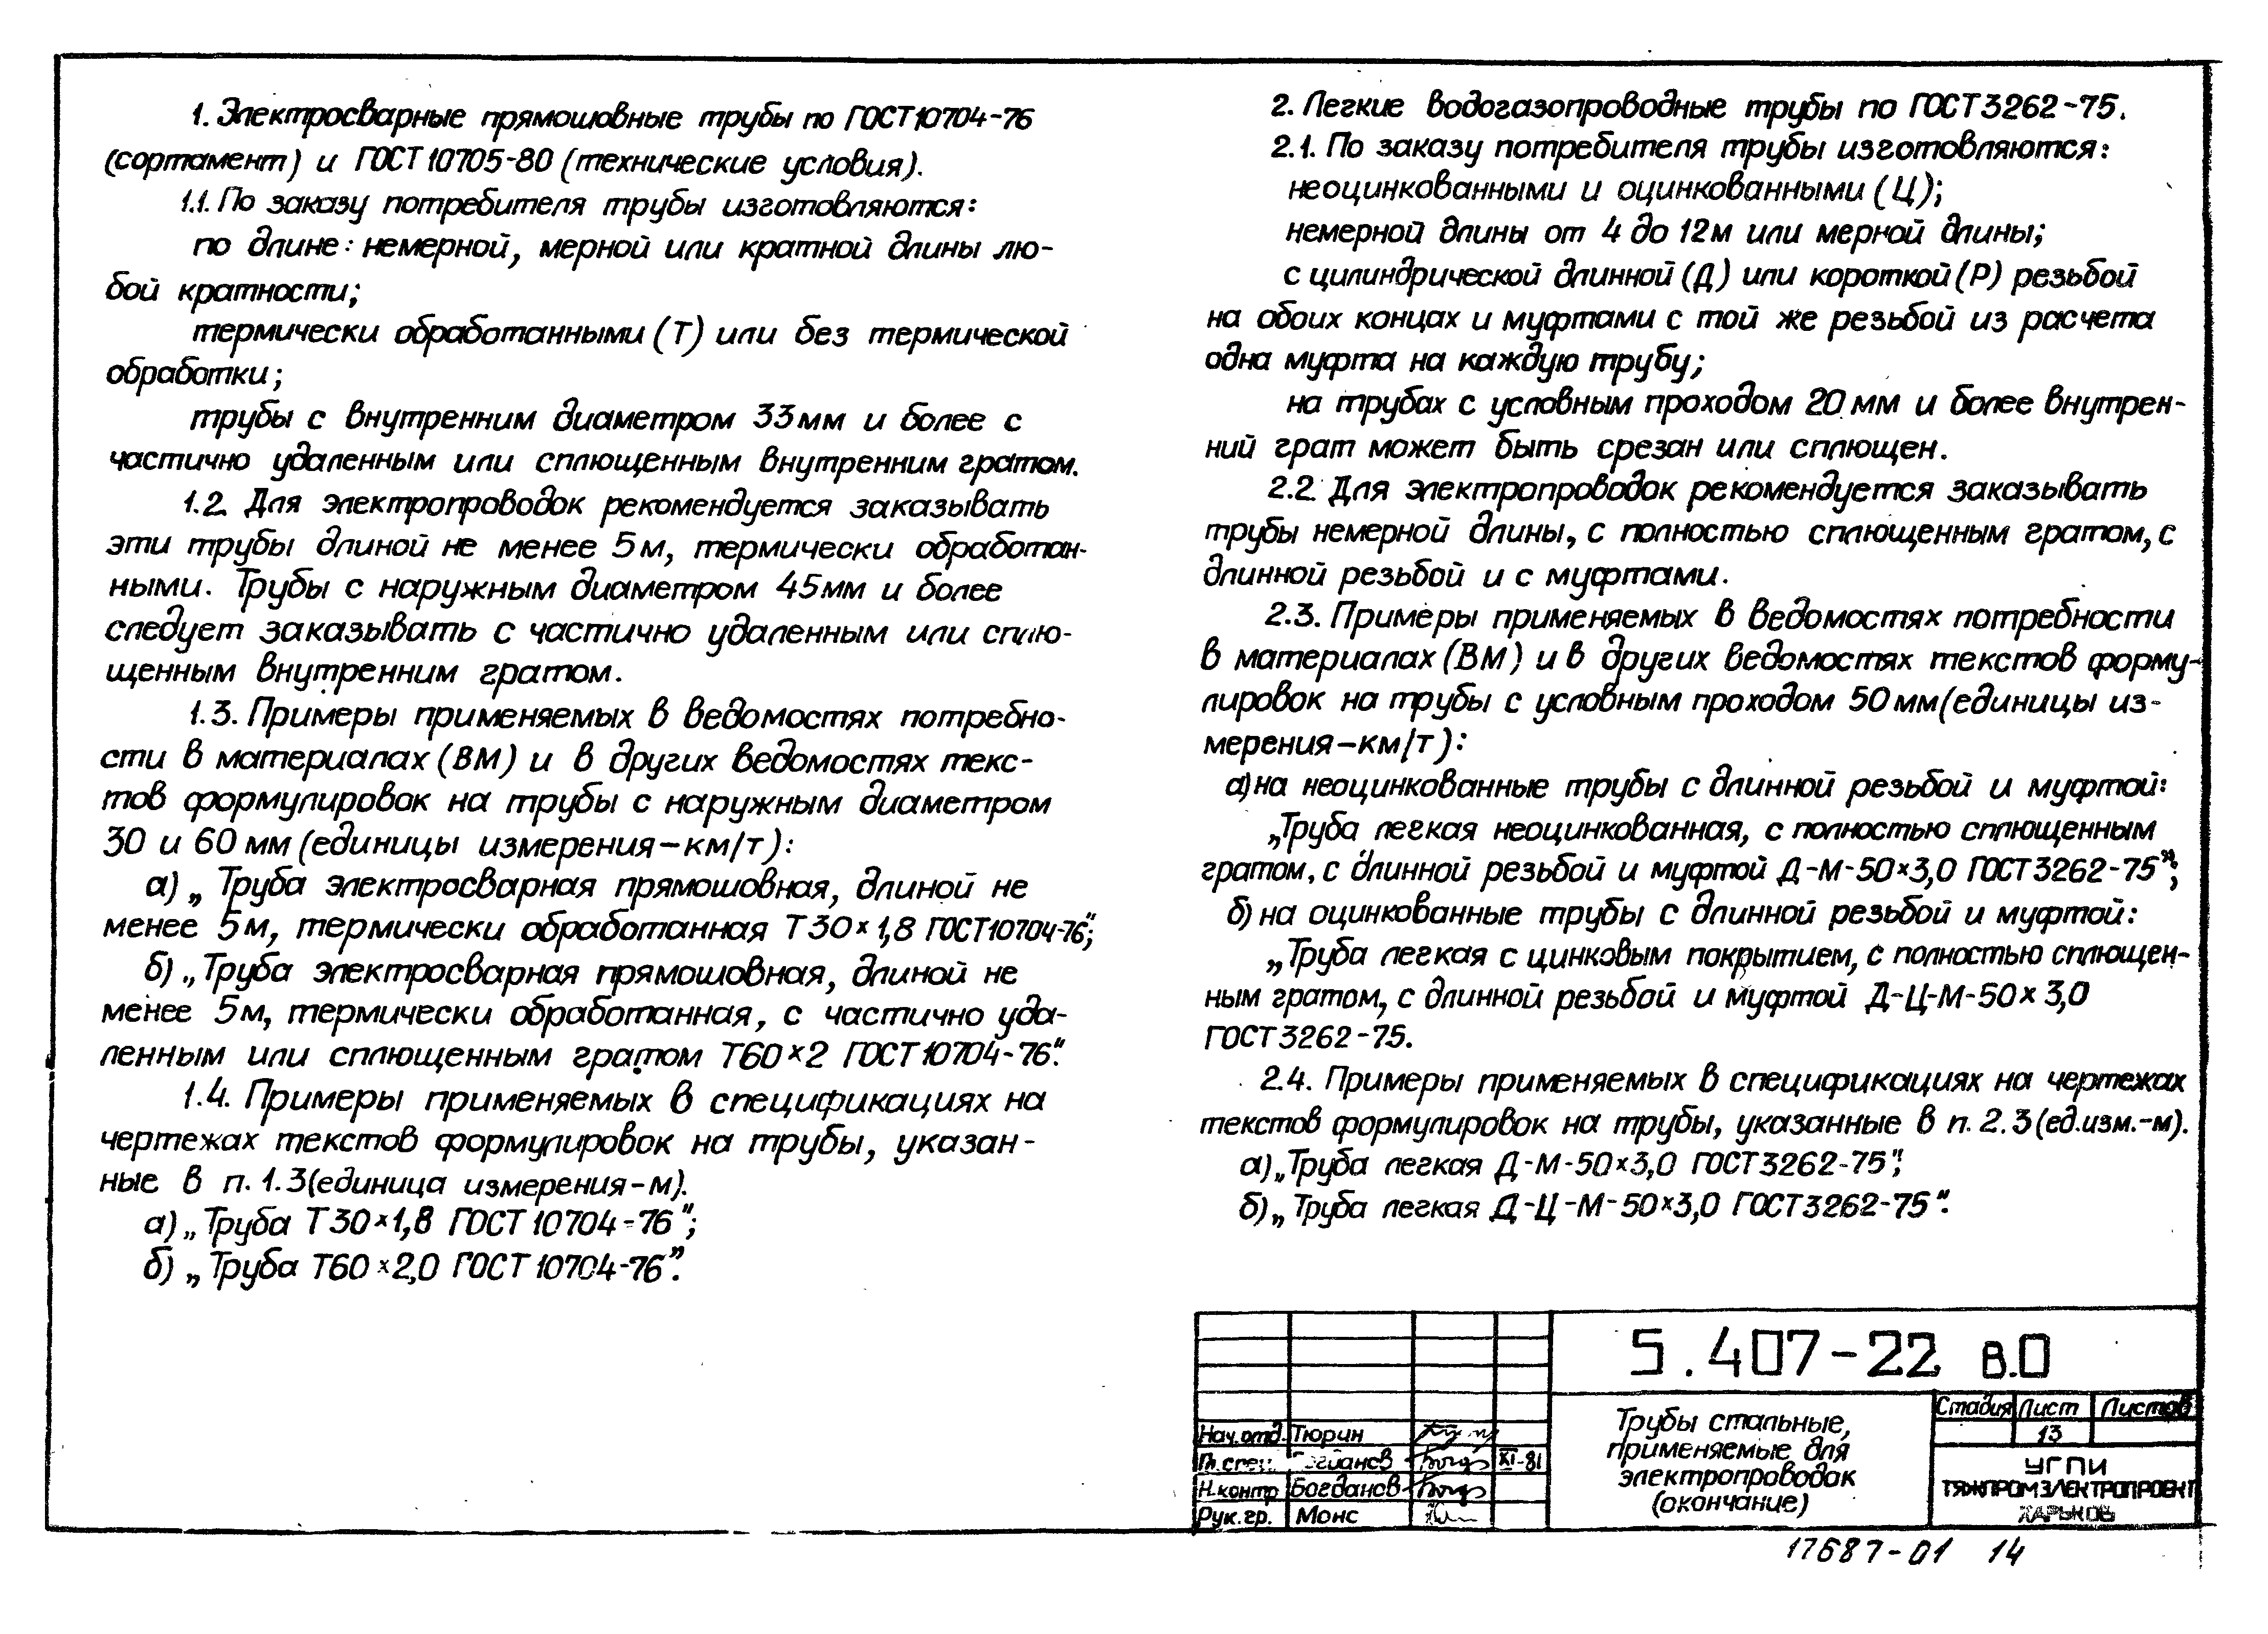 1. Электросварные прямошовные трубы по ГОСТ 10704-76
(сортамент) и ГОСТ 10705-80 (технические условия).
1.1. По заказу потребителя трубы изготовляются:
по длине: немерной, мерной или кратной длины лю-
бой кратности;
термически обработанными (Т) или без термической
обработки;
трубы с внутренним диаметром 33 мм и более с
частично удаленным или сплющенным внутренним гратом.
1.2. Для электропроводок рекомендуется заказывать
эти трубы длиной не менее 5 м, термически обработан-
ными. Трубы с наружным диаметром 45 мм и более
следует заказывать с частично удаленным или сплю-
щенным внутренним гратом.
1.3. Примеры применяемых в ведомостях потребно-
сти в материалах (ВМ) и в других ведомостях текс-
тов формулировок на трубы с наружным диаметром
30 и 60 мм (единицы измерения – км/т):
а) „Труба электросварная прямошовная, длиной не
менее 5 м, термически обработанная Т 30×1,8 ГОСТ 10704-76";
б) „Труба электросварная прямошовная, длиной не
менее 5 м, термически обработанная, с частично уда-
ленным или сплющенным гратом Т60×2 ГОСТ 10704-76".
1.4. Примеры применяемых в спецификациях на
чертежах текстов формулировок на трубы, указан-
ные в п. 1.3 (единица измерения – м).
а) „Труба Т 30×1,8 ГОСТ 10704-76";
б) „Труба Т60×2,0 ГОСТ 10704-76".
2. Легкие водогазопроводные трубы по ГОСТ 3262-75.
2.1. По заказу потребителя трубы изготовляются:
неоцинкованными и оцинкованными (Ц);
немерной длины от 4 до 12 м или мерной длины;
с цилиндрической длинной (Д) или короткой (Р) резьбой
на обоих концах и муфтами с той же резьбой из расчета
одна муфта на каждую трубу;
на трубах с условным проходом 20 мм и более внутрен-
ний грат может быть срезан или сплющен.
2.2. Для электропроводок рекомендуется заказывать
трубы немерной длины, с полностью сплющенным гратом, с
длинной резьбой и с муфтами.
2.3. Примеры применяемых в ведомостях потребности
в материалах (ВМ) и в других ведомостях текстов форму-
лировок на трубы с условным проходом 50 мм (единицы из-
мерения – км/т):
а) на неоцинкованные трубы с длинной резьбой и муфтой:
„Труба легкая неоцинкованная, с полностью сплющенным
гратом, с длинной резьбой и муфтой Д-М-50×3,0 ГОСТ 3262-75";
б) на оцинкованные трубы с длинной резьбой и муфтой:
„Труба легкая с цинковым покрытием, с полностью сплющен-
ным гратом, с длинной резьбой и муфтой Д-Ц-М-50×3,0
ГОСТ 3262-75.
2.4. Примеры применяемых в спецификациях на чертежах
текстов формулировок на трубы, указанные в п. 2.3 (ед.изм.-м).
а) „Труба легкая Д-М-50×3,0 ГОСТ 3262-75";
б) „Труба легкая Д-Ц-М-50×3,0 ГОСТ 3262-75".
5.407-22 в.0
Трубы стальные,
применяемые для
электропроводок
(окончание)
Стадия Лист Листов
13
УГПИ
ТЯЖПРОМЭЛЕКТРОПРОЕКТ
ХАРЬКОВ
Нач.отд. Тюрин
Гл.спец. XI-81
Н.контр Богданов
Рук.гр. Монс
17687-01 14